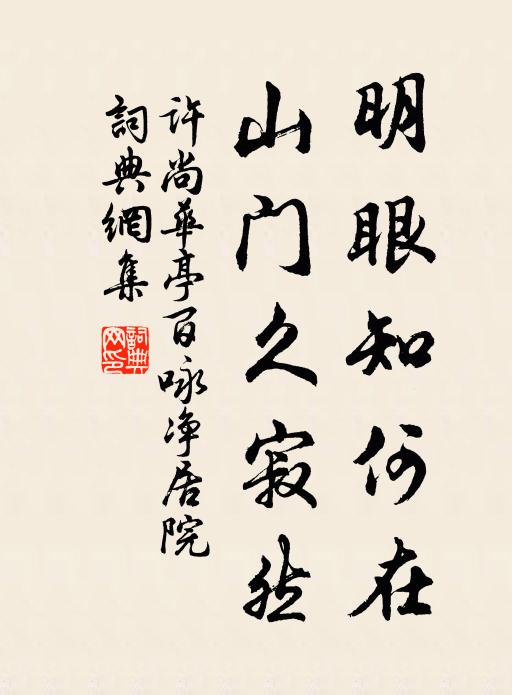 明眼知何在
山门久寂然
許尚華亭百咏净居院
詞典網集
詞典網印